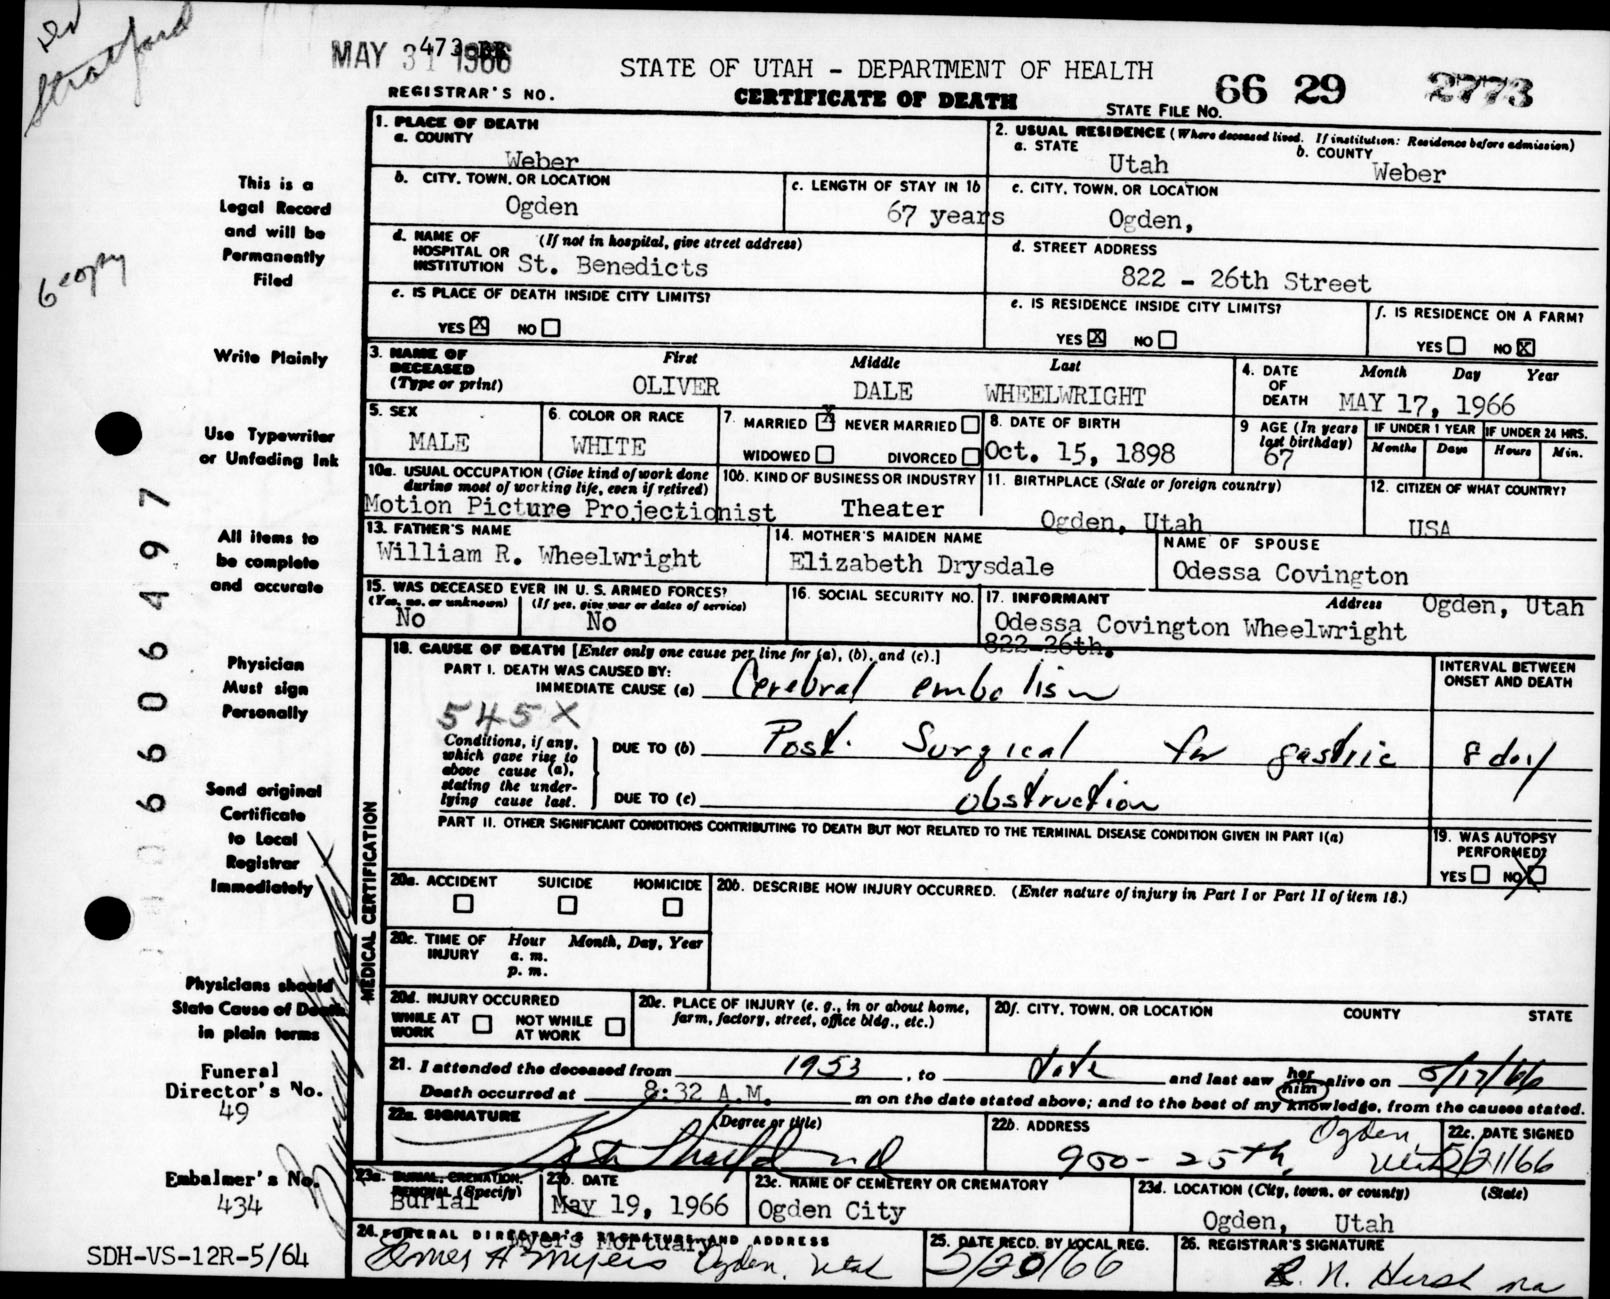 Dr
Stratford
MAY 31 1966
473
REGISTRAR'S NO.
STATE OF UTAH - DEPARTMENT OF HEALTH
CERTIFICATE OF DEATH
STATE FILE NO. 66 29 2773
This is a
Legal Record
and will be
Permanently
Filed
6 copy
Write Plainly
Use Typewriter
or Unfading Ink
All items to
be complete
and accurate
Physician
Must sign
Personally
Send original
Certificate
to Local
Registrar
Immediately
Physicians should
State Cause of Death
in plain terms
Funeral
Director's No.
49
Embalmer's No.
434
SDH-VS-12R-5/64
06606497
1. PLACE OF DEATH
a. COUNTY
Weber
2. USUAL RESIDENCE (Where deceased lived. If institution: Residence before admission)
a. STATE
Utah
b. COUNTY
Weber
b. CITY, TOWN, OR LOCATION
Ogden
c. LENGTH OF STAY IN 1b
67 years
c. CITY, TOWN, OR LOCATION
Ogden,
d. NAME OF HOSPITAL OR INSTITUTION
(If not in hospital, give street address)
St. Benedicts
d. STREET ADDRESS
822 - 26th Street
e. IS PLACE OF DEATH INSIDE CITY LIMITS?
YES X NO
e. IS RESIDENCE INSIDE CITY LIMITS?
YES X NO
f. IS RESIDENCE ON A FARM?
YES NO X
3. NAME OF DECEASED (Type or print)
First Middle Last
OLIVER DALE WHEELWRIGHT
4. DATE OF DEATH
Month Day Year
MAY 17, 1966
5. SEX
MALE
6. COLOR OR RACE
WHITE
7. MARRIED X NEVER MARRIED
WIDOWED DIVORCED
8. DATE OF BIRTH
Oct. 15, 1898
9 AGE (In years last birthday)
67
IF UNDER 1 YEAR
Months Days
IF UNDER 24 HRS.
Hours Min.
10a. USUAL OCCUPATION (Give kind of work done
during most of working life, even if retired)
Motion Picture Projectionist
10b. KIND OF BUSINESS OR INDUSTRY
Theater
11. BIRTHPLACE (State or foreign country)
Ogden, Utah
12. CITIZEN OF WHAT COUNTRY?
USA
13. FATHER'S NAME
William R. Wheelwright
14. MOTHER'S MAIDEN NAME
Elizabeth Drysdale
NAME OF SPOUSE
Odessa Covington
15. WAS DECEASED EVER IN U.S. ARMED FORCES?
(Yes, no, or unknown) (If yes, give war or dates of service)
No No
16. SOCIAL SECURITY NO.
17. INFORMANT Address
Odessa Covington Wheelwright Ogden, Utah
822-26th.
MEDICAL CERTIFICATION
18. CAUSE OF DEATH [Enter only one cause per line for (a), (b), and (c).]
PART I. DEATH WAS CAUSED BY:
IMMEDIATE CAUSE (a) Cerebral embolism
INTERVAL BETWEEN
ONSET AND DEATH
545X
Conditions, if any,
which gave rise to
above cause (a),
stating the under-
lying cause last.
DUE TO (b) Post. Surgical for gastric
8 day
DUE TO (c) obstruction
PART II. OTHER SIGNIFICANT CONDITIONS CONTRIBUTING TO DEATH BUT NOT RELATED TO THE TERMINAL DISEASE CONDITION GIVEN IN PART I(a)
19. WAS AUTOPSY
PERFORMED?
YES NO X
20a. ACCIDENT SUICIDE HOMICIDE
20b. DESCRIBE HOW INJURY OCCURRED. (Enter nature of injury in Part I or Part II of item 18.)
20c. TIME OF INJURY
Hour Month, Day, Year
a. m.
p. m.
20d. INJURY OCCURRED
WHILE AT WORK NOT WHILE AT WORK
20e. PLACE OF INJURY (e. g., in or about home,
farm, factory, street, office bldg., etc.)
20f. CITY, TOWN, OR LOCATION COUNTY STATE
21. I attended the deceased from 1953, to date and last saw her him alive on 5/17/66
Death occurred at 8:32 A.M. m on the date stated above; and to the best of my knowledge, from the causes stated.
22a. SIGNATURE (Degree or title)
22b. ADDRESS
900 - 25th, Ogden, Utah
22c. DATE SIGNED
5/21/66
23a. BURIAL, CREMATION, REMOVAL (Specify)
Burial
23b. DATE
May 19, 1966
23c. NAME OF CEMETERY OR CREMATORY
Ogden City
23d. LOCATION (City, town, or county) (State)
Ogden, Utah
24. FUNERAL DIRECTOR'S SIGNATURE AND ADDRESS
Myers Mortuary
Myers Ogden, Utah
25. DATE RECD. BY LOCAL REG.
5/20/66
26. REGISTRAR'S SIGNATURE